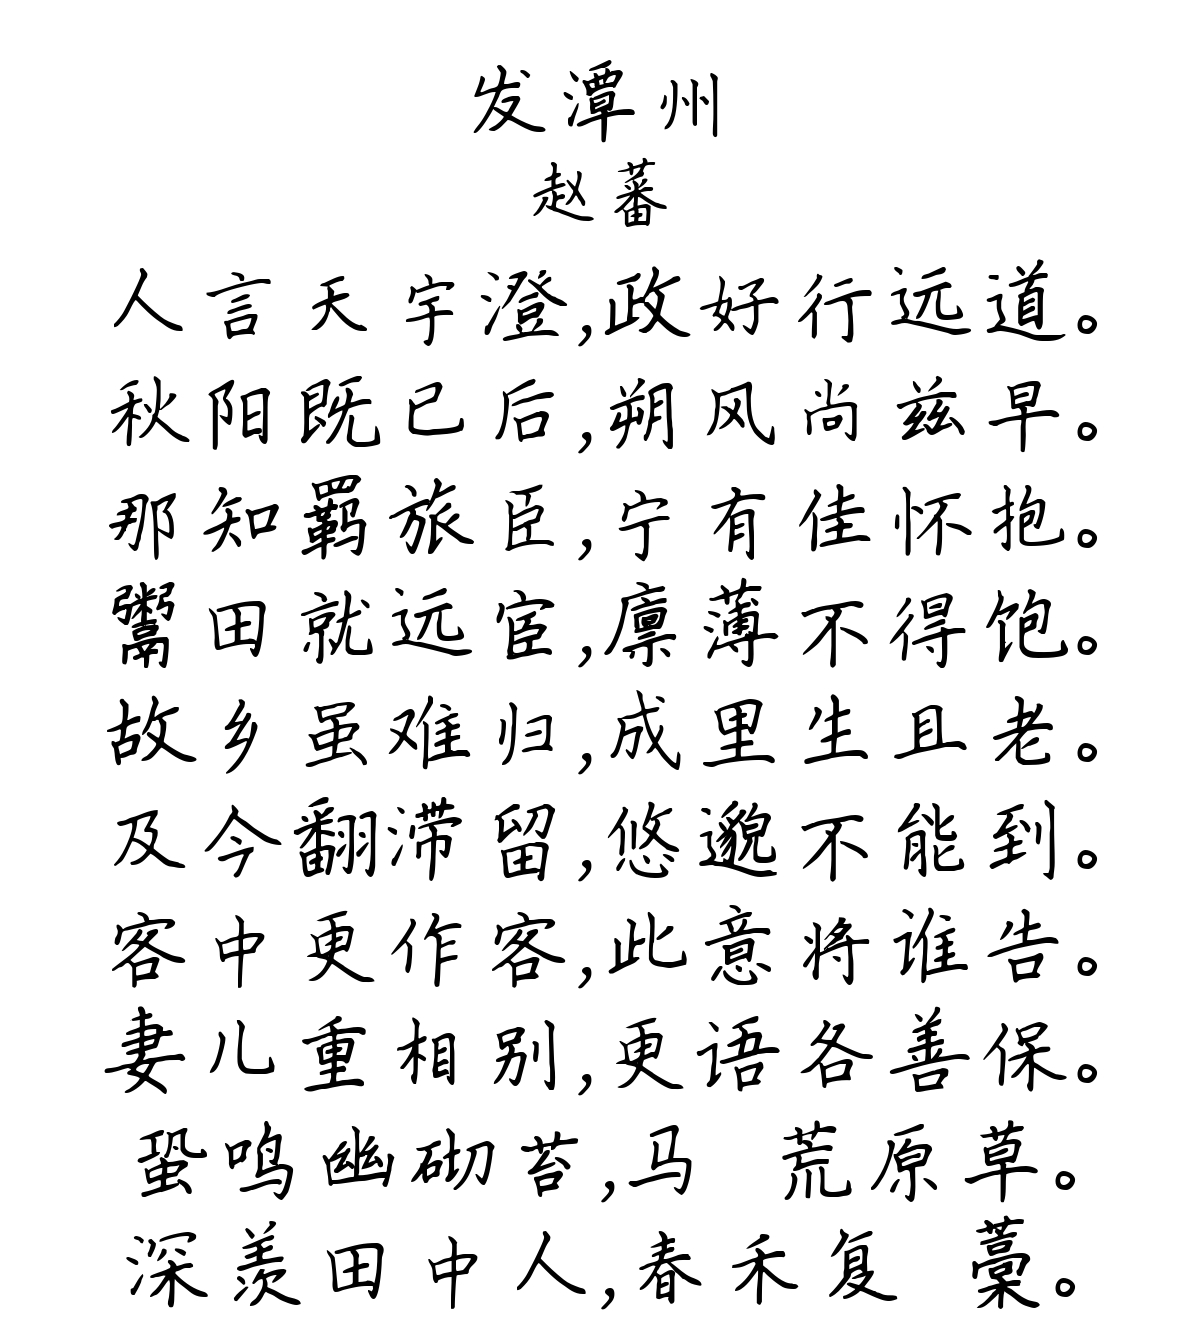 发潭州
赵蕃
人言天宇澄,政好行远道。
秋阳既已后,朔风尚兹早。
那知羁旅臣,宁有佳怀抱。
鬻田就远宦,廪薄不得饱。
故乡虽难归,成里生且老。
及今翻滞留,悠邈不能到。
客中更作客,此意将谁告。
妻儿重相别,更语各善保。
蛩鸣幽砌苔,马 荒原草。
深羡田中人,春禾复 藁。